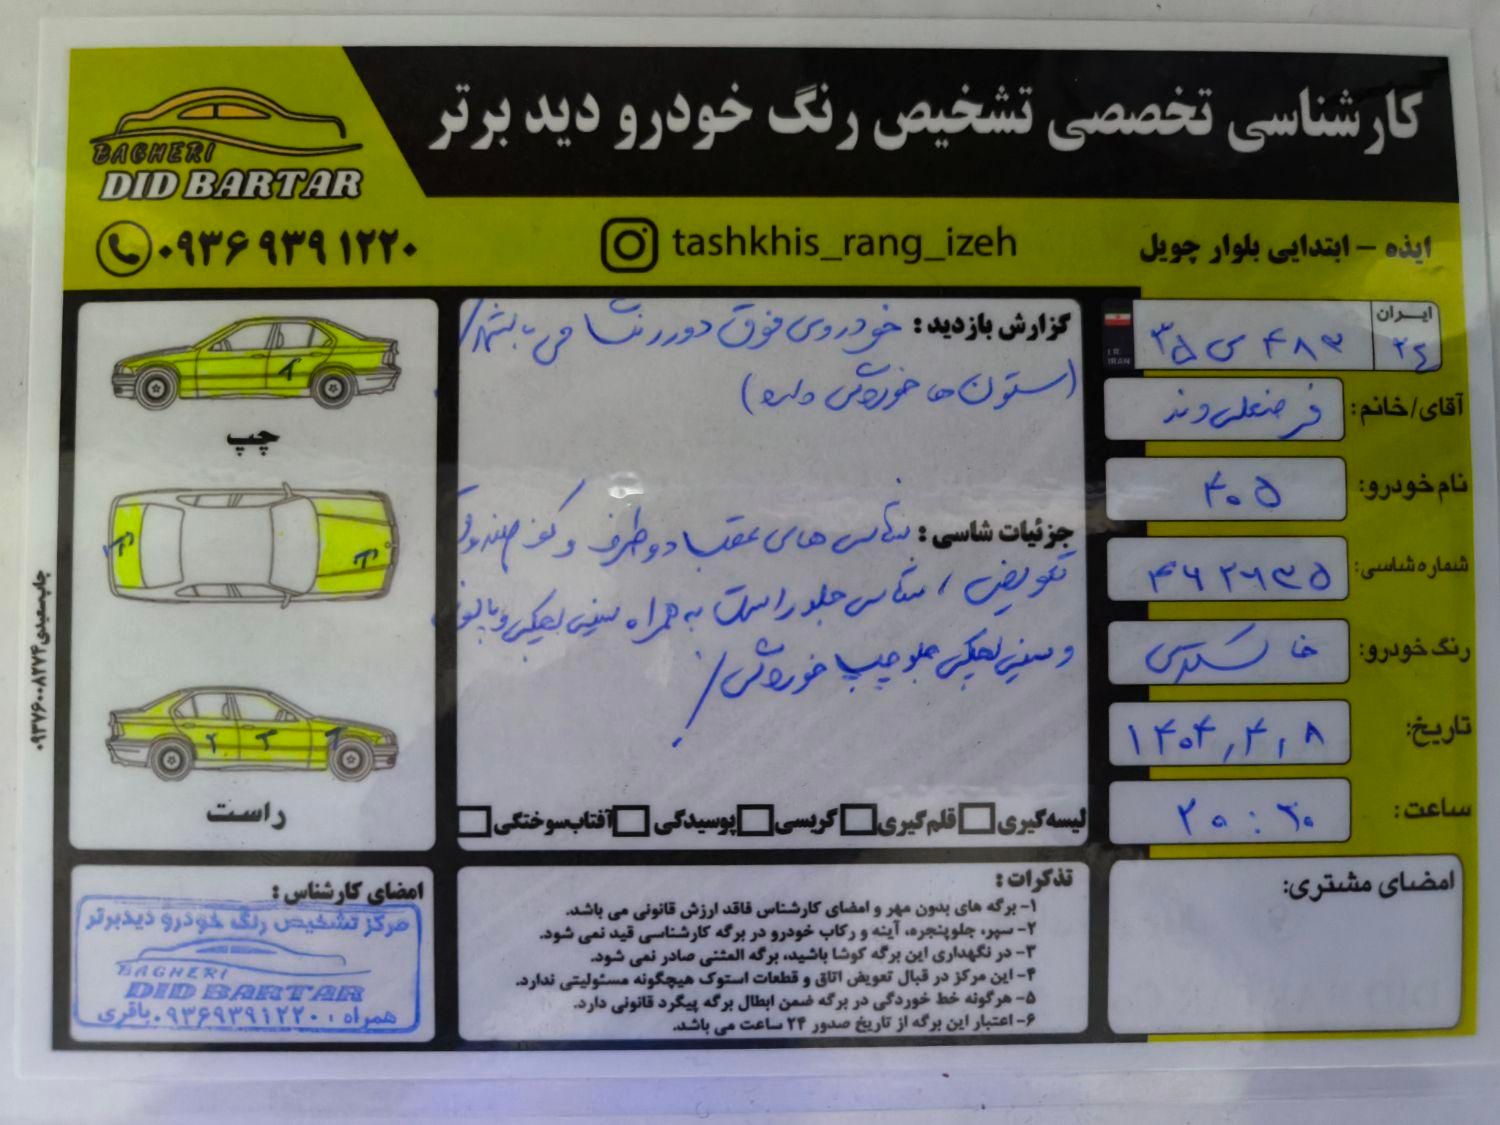 کارشناسی تخصصی تشخیص رنگ خودرو دید برتر
BAGHERI
DID BARTAR
ایذه - ابتدایی بلوار چویل
tashkhis_rang_izeh
۰۹۳۶ ۹۳۹ ۱۲۲۰
ایران
۲۴
۴۸۳ س ۳۵
I.R.
IRAN
آقای/خانم: فرضعلی وند
نام خودرو: ۴۰۵
شماره شاسی: ۴۶۲۶۳۵
رنگ خودرو: خاکستری
تاریخ: ۱۴۰۴,۴,۸
ساعت: ۲۰:۳۰
امضای مشتری:
گزارش بازدید: خودروی فوق دور رنگ می باشد/
(ستون ها خوردگی دارد)
جزئیات شاسی: شاسی های عقب دو طرف و کف صندوق
تعویض / شاسی جلو راست به همراه سینی پهلویی
و سینی پهلویی جلو چپ خوردگی/
لیسه گیری
قلم گیری
گریسی
پوسیدگی
آفتاب سوختگی
تذکرات:
۱- برگه های بدون مهر و امضای کارشناس فاقد ارزش قانونی می باشد.
۲- سپر، جلوپنجره، آینه و رکاب خودرو در برگه کارشناسی قید نمی شود.
۳- در نگهداری این برگه کوشا باشید، برگه المثنی صادر نمی شود.
۴- این مرکز در قبال تعویض اتاق و قطعات استوک هیچگونه مسئولیتی ندارد.
۵- هرگونه خط خوردگی در برگه ضمن ابطال برگه پیگرد قانونی دارد.
۶- اعتبار این برگه از تاریخ صدور ۲۴ ساعت می باشد.
چپ
راست
امضای کارشناس:
مرکز تشخیص رنگ خودرو دیدبرتر
BAGHERI
DID BARTAR
همراه: ۰۹۳۶۹۳۹۱۲۲۰ باقری
چاپ سعیدی ۰۹۳۷۶۰۰۸۲۷۴